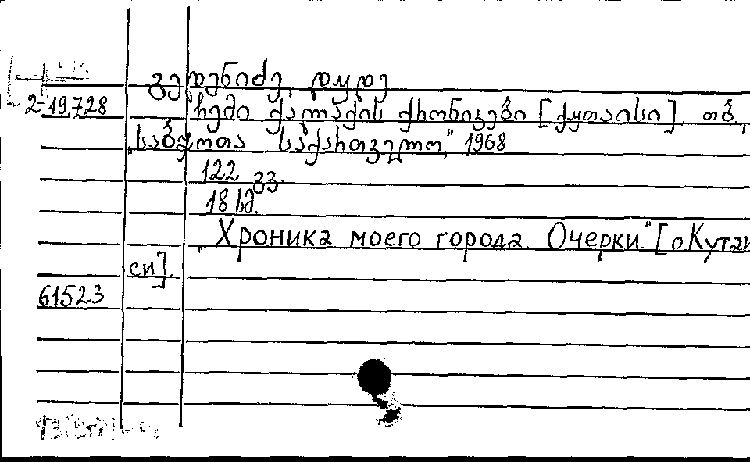 გედენიძე, დუდე
2-19.728 ჩემი ქალაქის ქრონიკები [ქუთაისი]. თბ.,
„საბჭოთა საქართველო," 1968
122 გვ.
18 სმ.
„Хроника моего города. Очерки." [о Кутаи
си].
61523